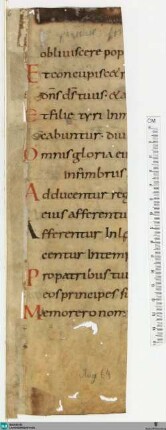 obliuiscere pop
Et concupiscet r
dns ds tuus. & a
Et filie tyri In m
cabuntur. Diu
Omnis gloria ei
In fimbriis
Adducentur reg
eius afferentu
Afferentur In l&
centur In temp
Pro patribus tui
eos principes s
Memor ero nom
CM